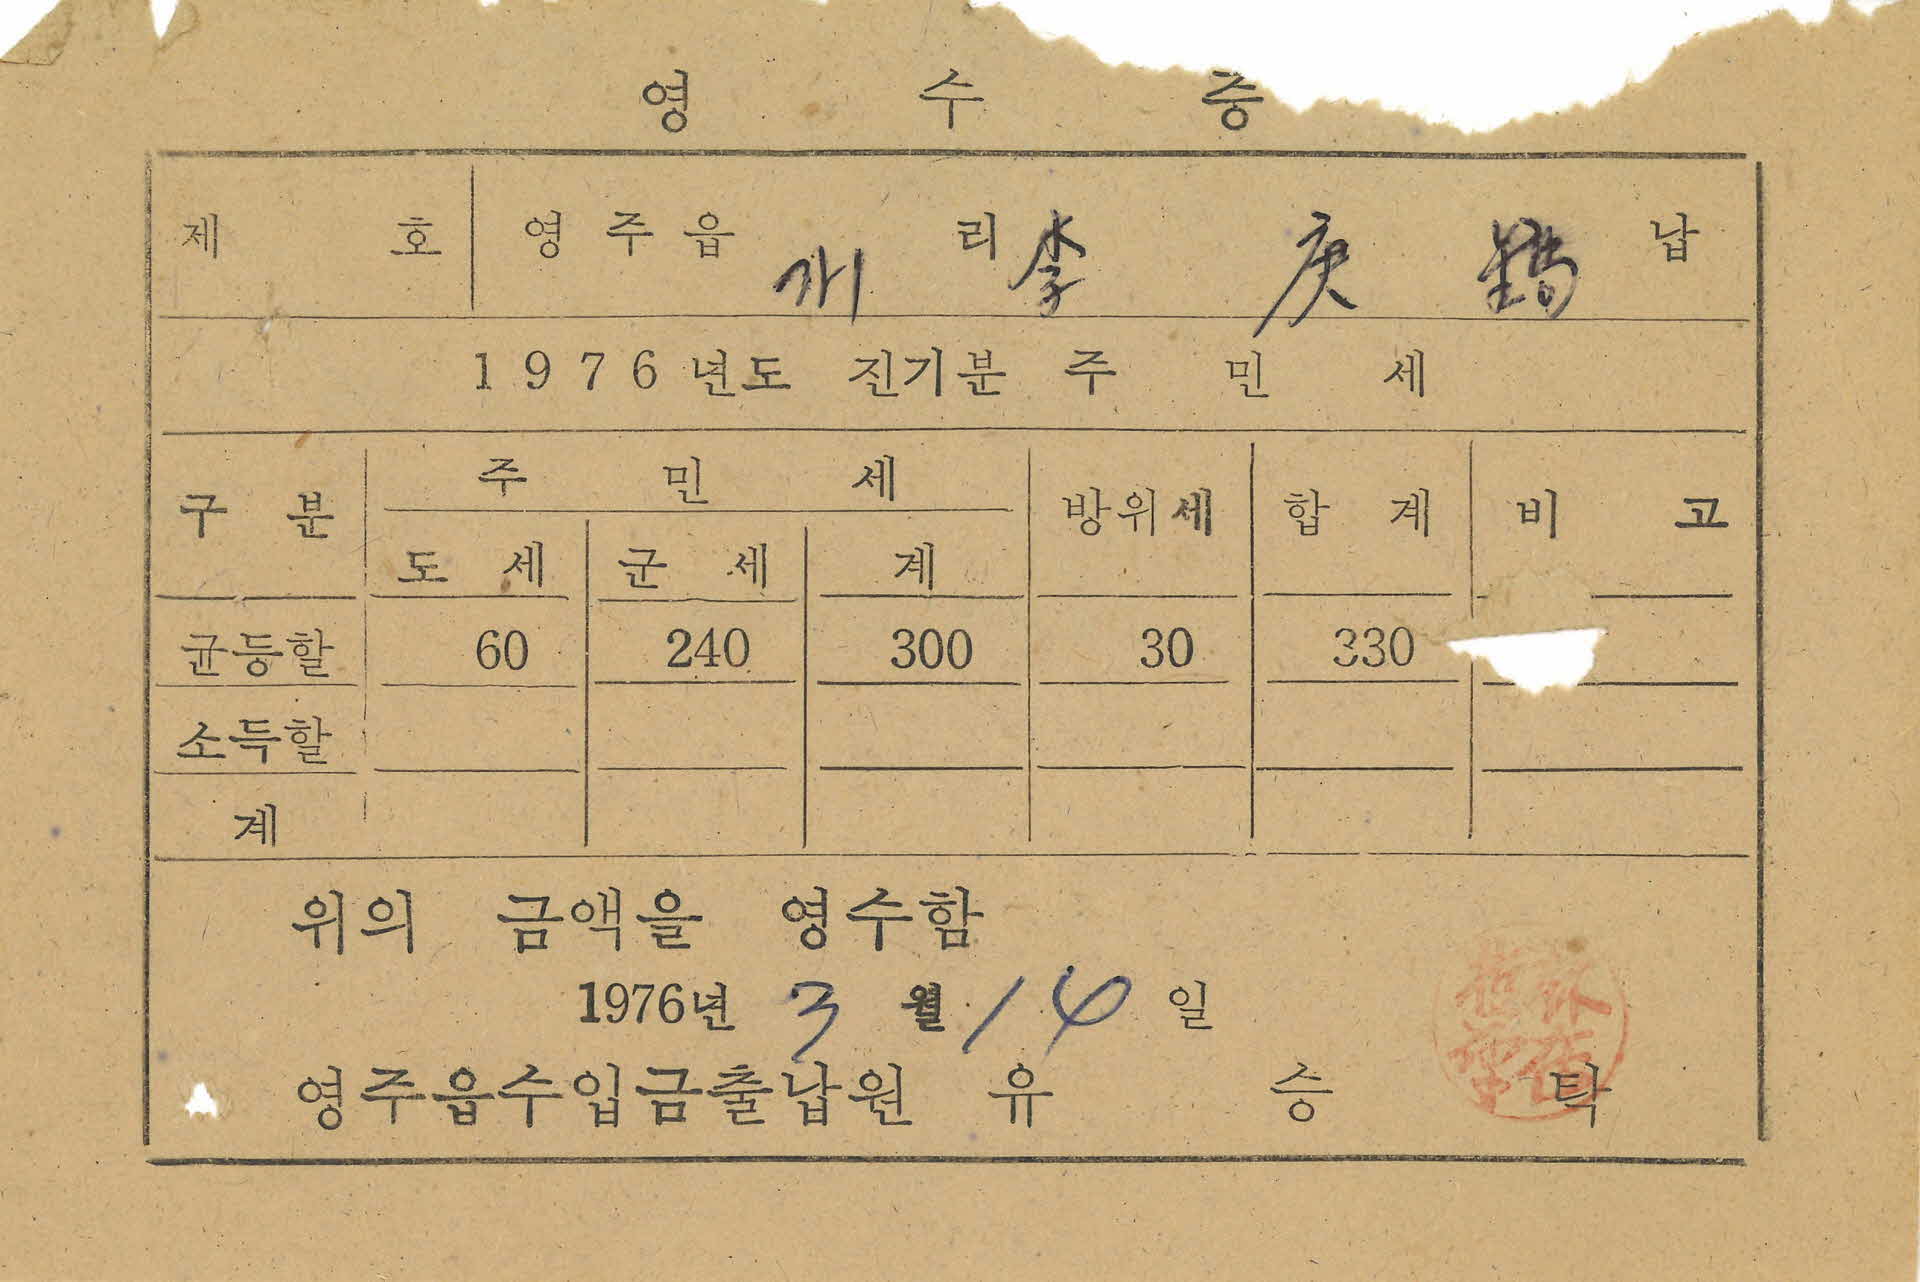 영 수 증
제 호 영 주 읍 리 李 庚 납
1976년도 진기분 주 민 세
구 분 주 민 세 방위세 합 계 비 고
도 세 군 세 계
균등할 60 240 300 30 330
소득할
계
위의 금액을 영수함
1976년 3 월 14 일
영주읍수입금출납원 유 승 탁